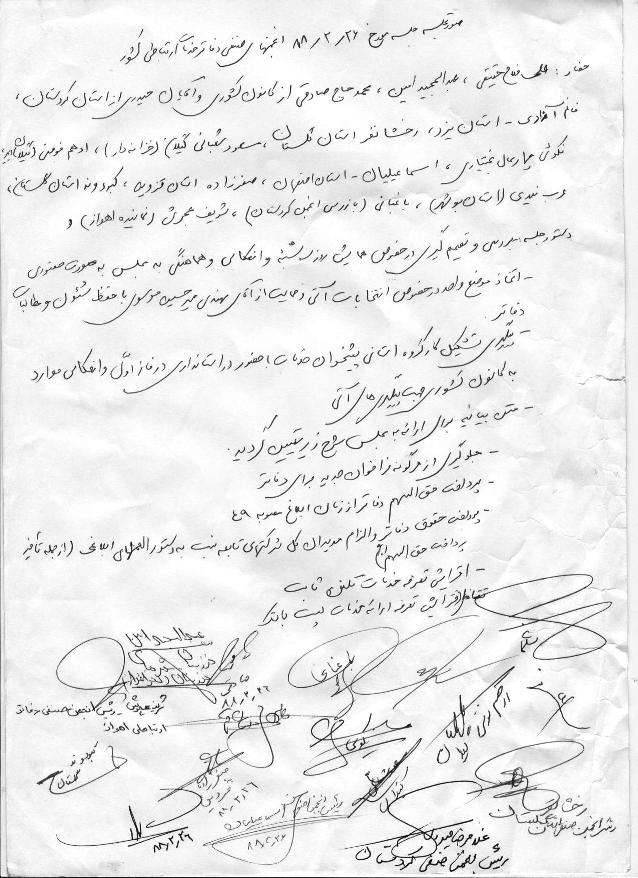 صورتجلسه جلسه مورخ ۸۸/۲/۲۶ انجمنهای صنفی دفاتر خدمات ارتباطی کشور
حضار: فلاح حقیقی ، عبدالمجید امین ، محمد حاج صادقی از کانون کشوری و آقایان حیدری از استان کردستان ،
خانم آقادی - استان یزد ، رخشانفر استان گلستان ، مسعود شعبانی گیلان (خزانه دار) ، ادهم مومن
نکوئی چهارمحال بختیاری ، اسماعیلیان - استان اصفهان ، صفرزاده استان قزوین ، کبودوند استان گلستان ،
عرب نیدی (استان بوشهر) ، باغبانی (بازرس انجمن کردستان) ، شریف عجرش (نماینده اهواز) و
دستور جلسه: بررسی و تصمیم گیری در خصوص همایش روز سه شنبه و انعکاس و هماهنگی به مجلس به صورت حضوری
- اتخاذ موضع واحد در خصوص انتخابات آتی و حمایت از آقای مهندس میرحسین موسوی با حفظ شئون و مطالبات
دفاتر
- پیگیری تشکیل کارگروه استانی پیشخوان خدمات با حضور در استانداری در فاز اول و انعکاس موارد
به کانون کشوری جهت پیگیری های آتی
- متن بیانیه برای ارائه به مجلس بشرح زیر تعیین گردید.
- جلوگیری از هرگونه فراخوان جدید برای دفاتر
- پرداخت حق السهم دفاتر از زمان ابلاغ مصوبه ۴۹
- پرداخت حقوق دفاتر و الزام مدیران کل شرکتهای تابعه نسبت به دستورالعملهای ابلاغی (از جمله تأخیر
پرداخت حق السهم)
- افزایش تعرفه خدمات تلفن ثابت
تقاضای افزایش تعرفه ارائه خدمات پست بانک
باغبانی
۸۸/۲/۲۶
رئیس انجمن صنفی دفاتر
ارتباطی اهواز
نکوئی
گیلان
کبودوند
گلستان
صفرزاده
قزوین
۸۸/۲/۲۶
۸۸/۲/۲۶
رئیس انجمن صنفی اسماعیلیان
۸۸/۲/۲۶
رخشانفر
رئیس انجمن صنفی استان گلستان
غلامرضا حیدری
رئیس انجمن صنفی کردستان